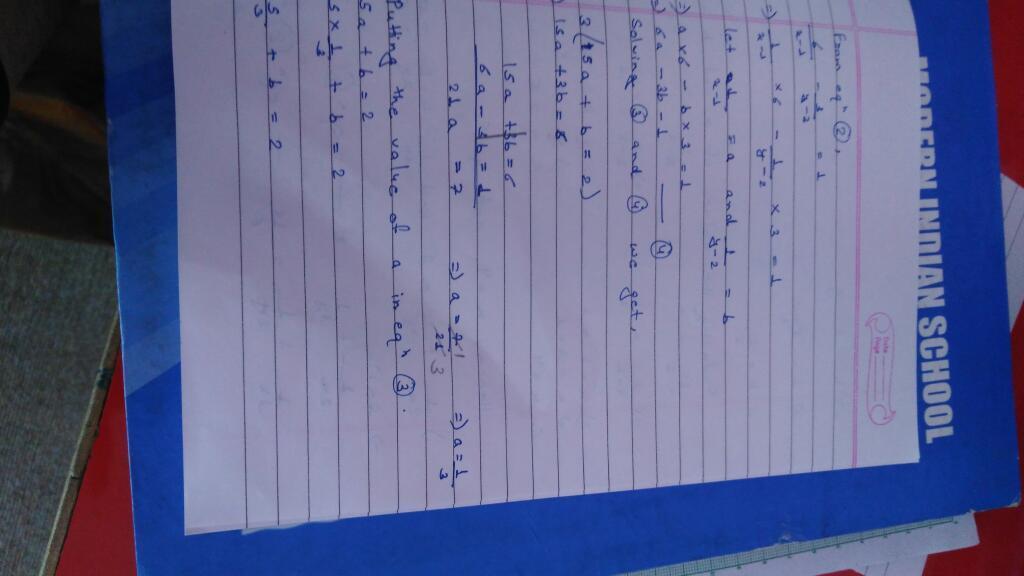 MODERN INDIAN SCHOOL
Date
Page
From eqn ②,
6/x-1 - 3/y-2 = 1
=) 1/x-1 × 6 - 1/y-2 × 3 = 1
let 1/x-1 = a and 1/y-2 = b
=) a×6 - b×3 = 1
=) 6a - 3b = 1 — ④
Solving ③ and ④ we get,
3(5a + b = 2)
) 15a + 3b = 6
15a + 3b = 6
6a - 3b = 1
21a = 7 =) a = 7/21 1/3 =) a = 1/3
Putting the value of a in eqn ③.
5a + b = 2
5 × 1/3 + b = 2
5/3 + b = 2